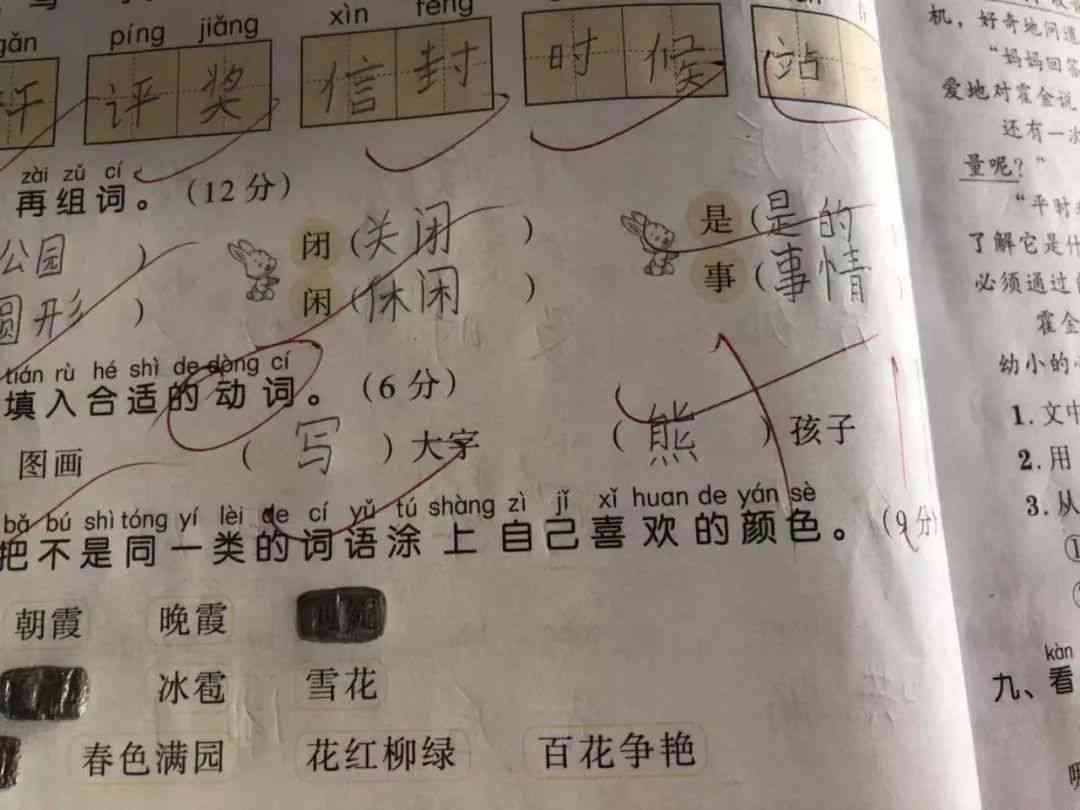 gǎn píng jiǎng xìn fēng
评奖 信封 时候 站
zài zǔ cí
再组词。(12分)
公园 ) 闭(关闭 ) 是(是的
圆形 ) 闲(休闲 ) 事(事情 )
tián rù hé shì de dòng cí
填入合适的动词。(6分)
图画 ( 写 )大字 ( 熊 )孩子
bǎ bú shì tóng yí lèi de cí yǔ tú shàng zì jǐ xǐ huan de yán sè
把不是同一类的词语涂上自己喜欢的颜色。(9分)
朝霞 晚霞
冰雹 雪花
春色满园 花红柳绿 百花争艳
机,好奇地问道
“妈妈回答
爱地对霍金说
还有一次
量呢?”
“平时
了解它是什
必须通过
霍金
幼小的心
1.文中
2.用
3.从
①
kàn
九、看